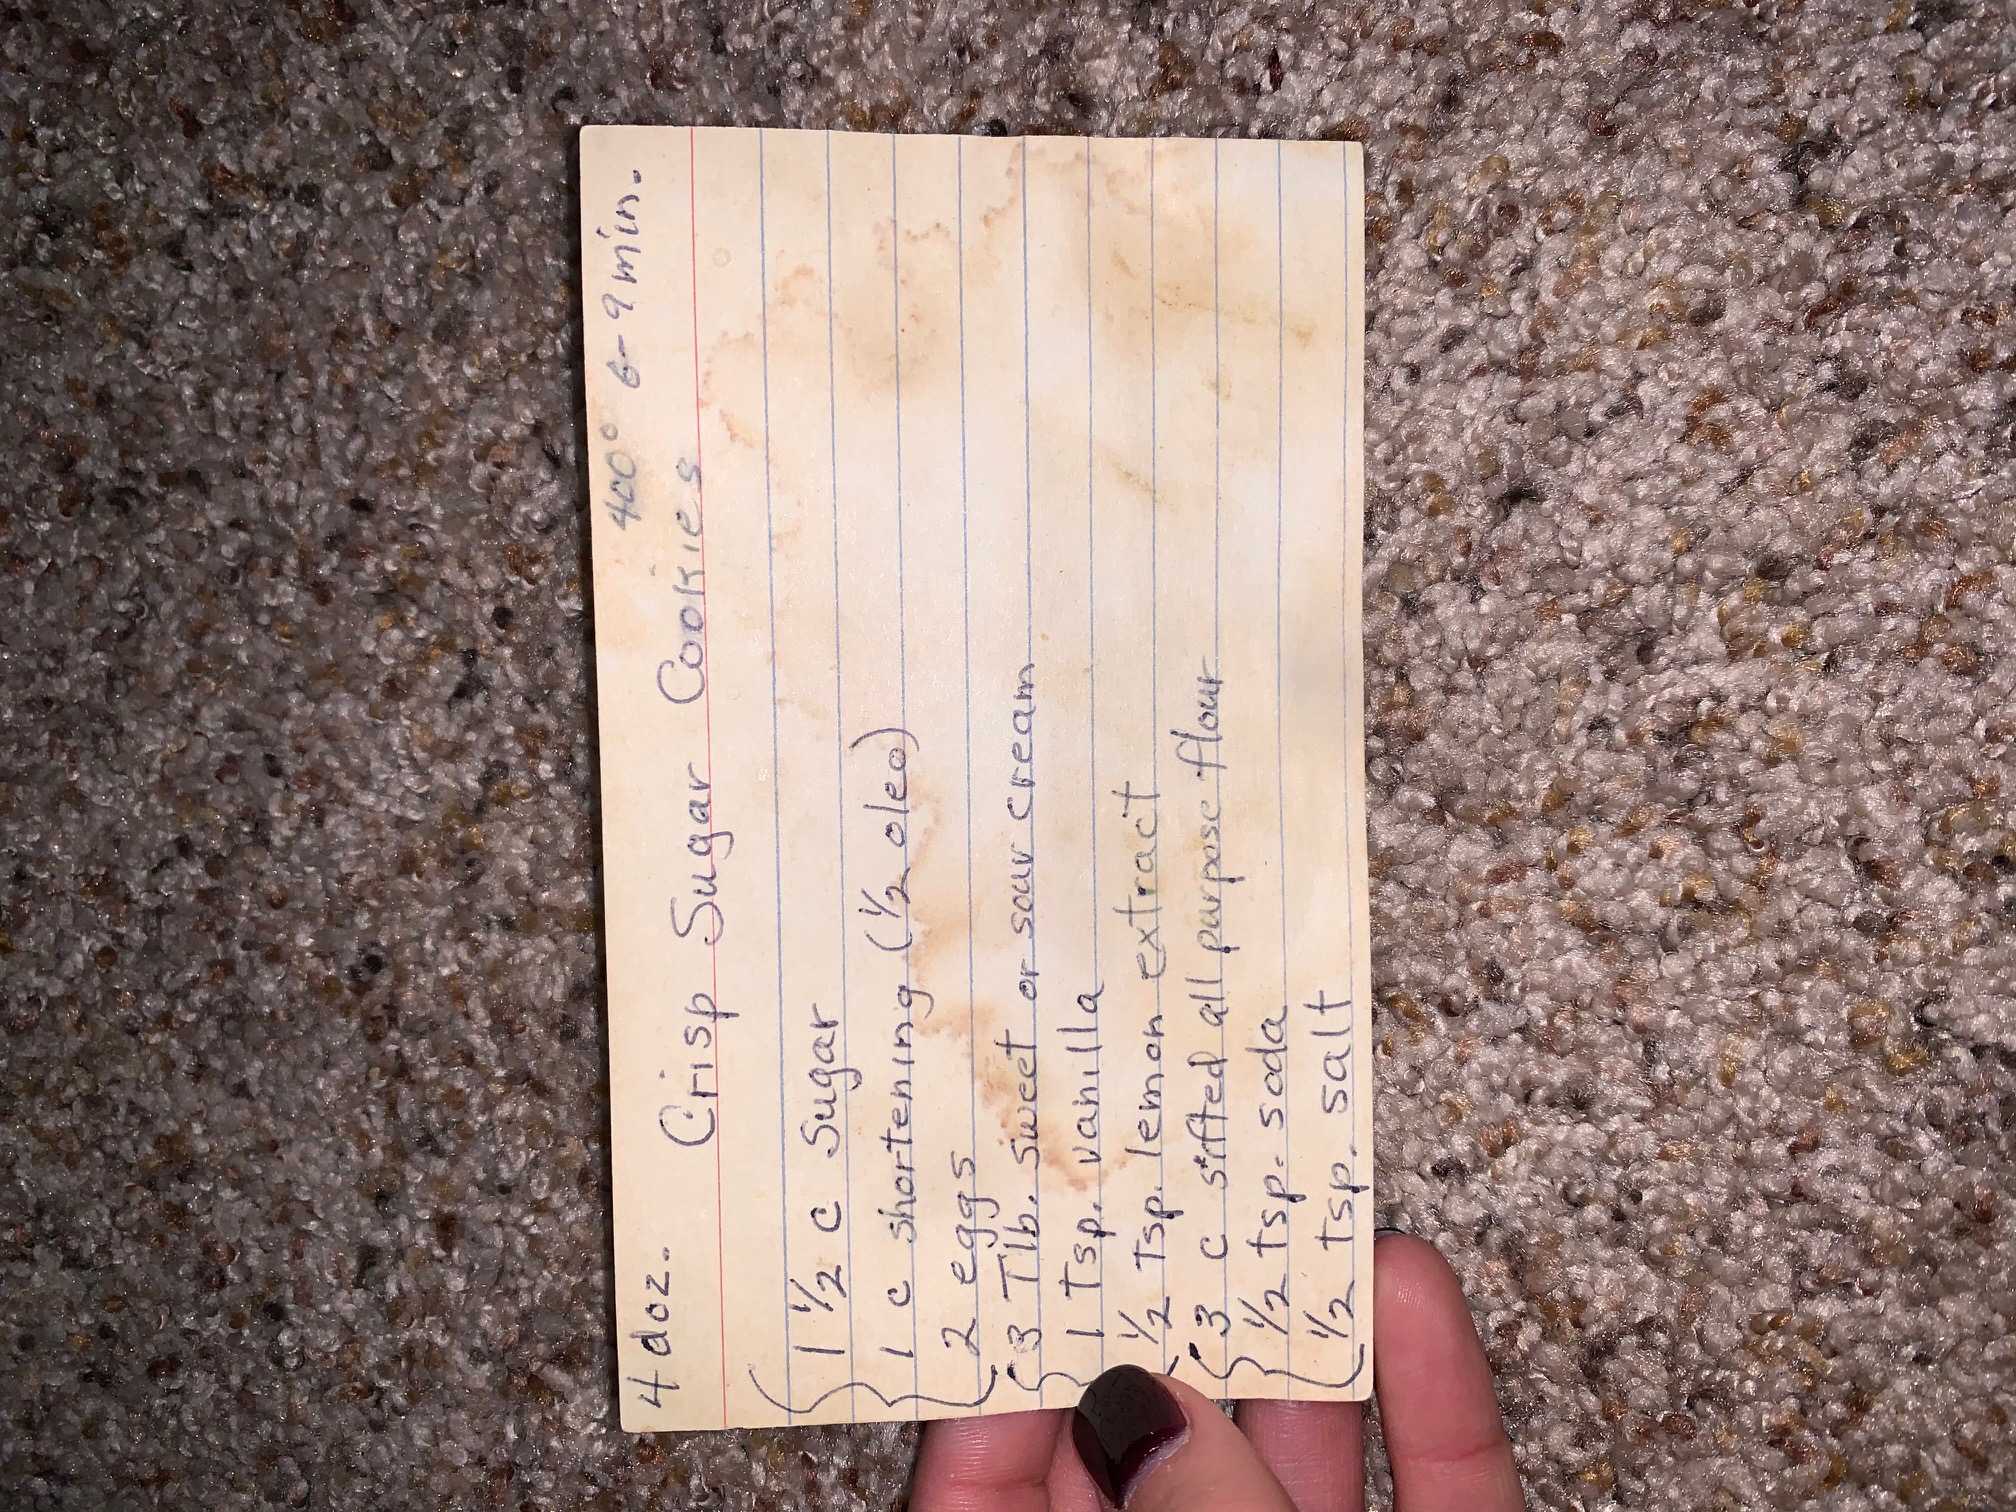 4 doz.
400° 6-9 min.
Crisp Sugar Cookies
1 1/2 c Sugar
1 c shortening (1/2 oleo)
2 eggs
3 Tlb. sweet or sour cream
1 Tsp. vanilla
1/2 Tsp. lemon extract
3 c sifted all purpose flour
1/2 tsp. soda
1/2 tsp. salt